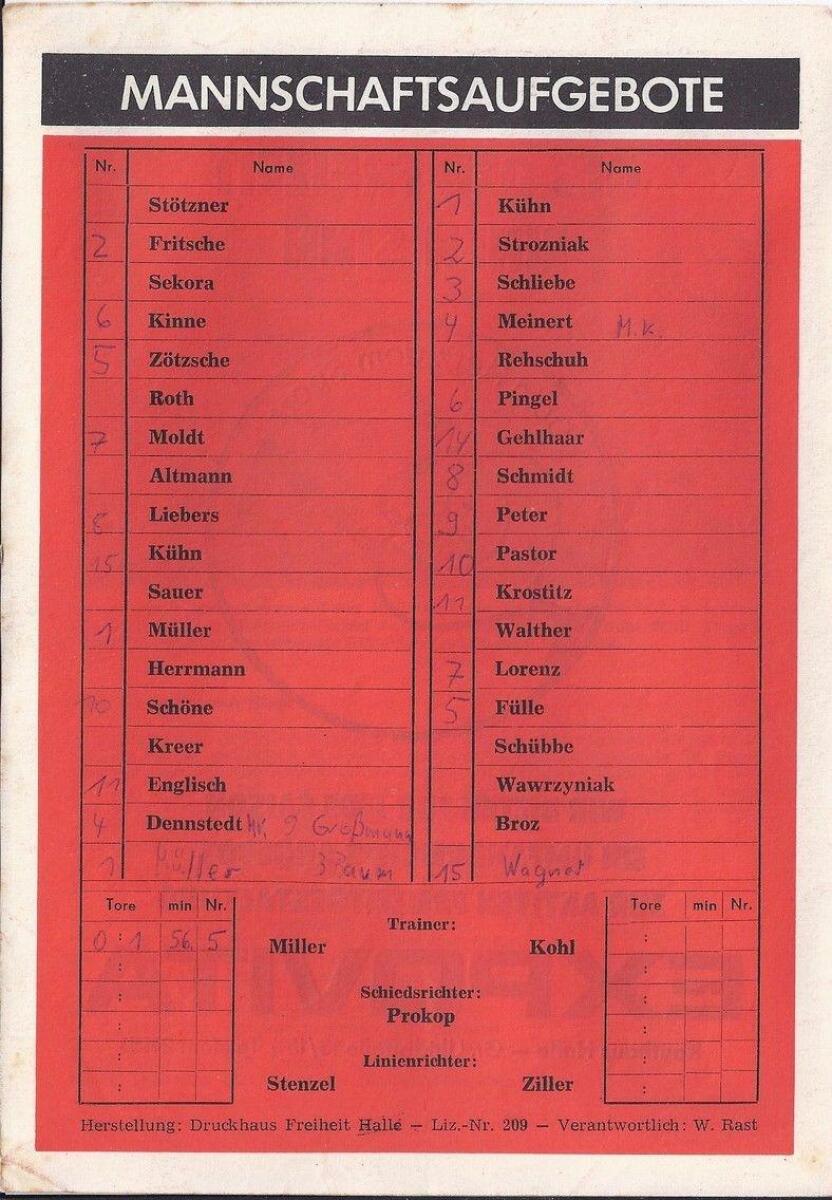 MANNSCHAFTSAUFGEBOTE
Nr. Name Nr. Name
Stötzner 1 Kühn
2 Fritsche 2 Strozniak
Sekora 3 Schliebe
6 Kinne 4 Meinert M.K.
5 Zötzsche Rehschuh
Roth 6 Pingel
7 Moldt 14 Gehlhaar
Altmann 8 Schmidt
Liebers 9 Peter
15 Kühn 10 Pastor
Sauer 11 Krostitz
1 Müller Walther
Herrmann 7 Lorenz
10 Schöne 5 Fülle
Kreer Schübbe
11 Englisch Wawrzyniak
4 Dennstedt Nr. 9 Großmann Broz
1 Müller 3 Baum 15 Wagner
Tore min Nr. Trainer: Tore min Nr.
0 : 1 56. 5 Miller Kohl :
: :
: Schiedsrichter: :
: Prokop :
: Linienrichter: :
: Stenzel Ziller :
Herstellung: Druckhaus Freiheit Halle — Liz.-Nr. 209 — Verantwortlich: W. Rast